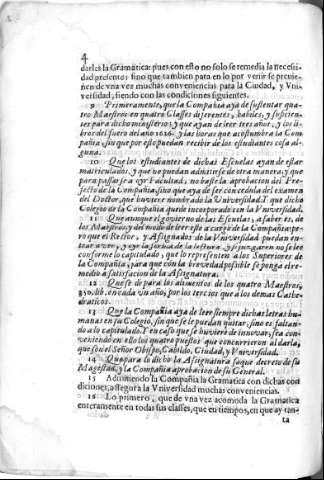 4
darles la Gramatica: pues con esto no solo se remedia la necesi-
dad presente: sino que tambien para en lo por venir se preuie-
nen de vna vez muchas conveniencias para la Ciudad, y Vni-
versidad, siendo con las condiciones siguientes.
9 Primeramente, que la Compañia aya de sustentar qua-
tro Maestros en quatro Classes diferentes, habiles, y suficien-
tes para dicho ministerio: y que ayan de leer tres años,
bror del fuero del año 1626. y las horas que acostumbra la Com
pañia, sin que por esto puedan recibir de los estudiantes cosa al-
guna.
10 Que los estudiantes de dichas Escuelas ayan de estar
matriculados, y que no puedan admitirse de otra manera: y que
para passar a qualquier Facultad, no baste la aprobacion del Pre-
fecto de la Compañia, sino que aya de ser concedida del examen
del Doctor, que huviere nombrado la Vniversidad. Y que dicho
Colegio de la Compañia quede incorporado con la Vniversidad.
11 Que aunque el govierno de las Escuelas, a saber es, de
los Maestros, y del modo de leer este a cargo de la Compañia: pe-
ro que el Rector, y Asignados de la Vniversidad puedan en-
trar a ver, y oyr la forma de la lectura. Y si juzgaren no se lee
conforme lo capitulado, que lo representen a los Superiores de
la Compañia, para que con la brevedad posible se ponga el re-
medio à satisfacion de la Asignatura.
12 Que se dè para los alimentos de los quatro Maestros,
350. lib. en cada vn año, por los tercios que a los demas Cathe-
draticos.
13 Que la Compañia aya de leer siempre dichas letras hu-
manas en su Colegio, sin que se le puedan quitar, sino es faltan-
do a lo capitulado. Y en caso que se huviere de innovar, sea con-
veniendo en ello los quatro puestos que concurrieron al darla,
que son el Señor Obispo, Cabildo, Ciudad, y Vniversidad.
14 Que para lo dicho la Asignatura saque decreto de su
Magestad, y la Compañia aprobacion de su General.
15 Admitiendo la Compañia la Gramatica con dichas con
diciones, assegura la Vniversidad muchas conveniencias.
16 Lo primero, que de vna vez acomoda la Gramatica
enteramente en todas sus classes, que en tiempos, en que ay tan-
ta